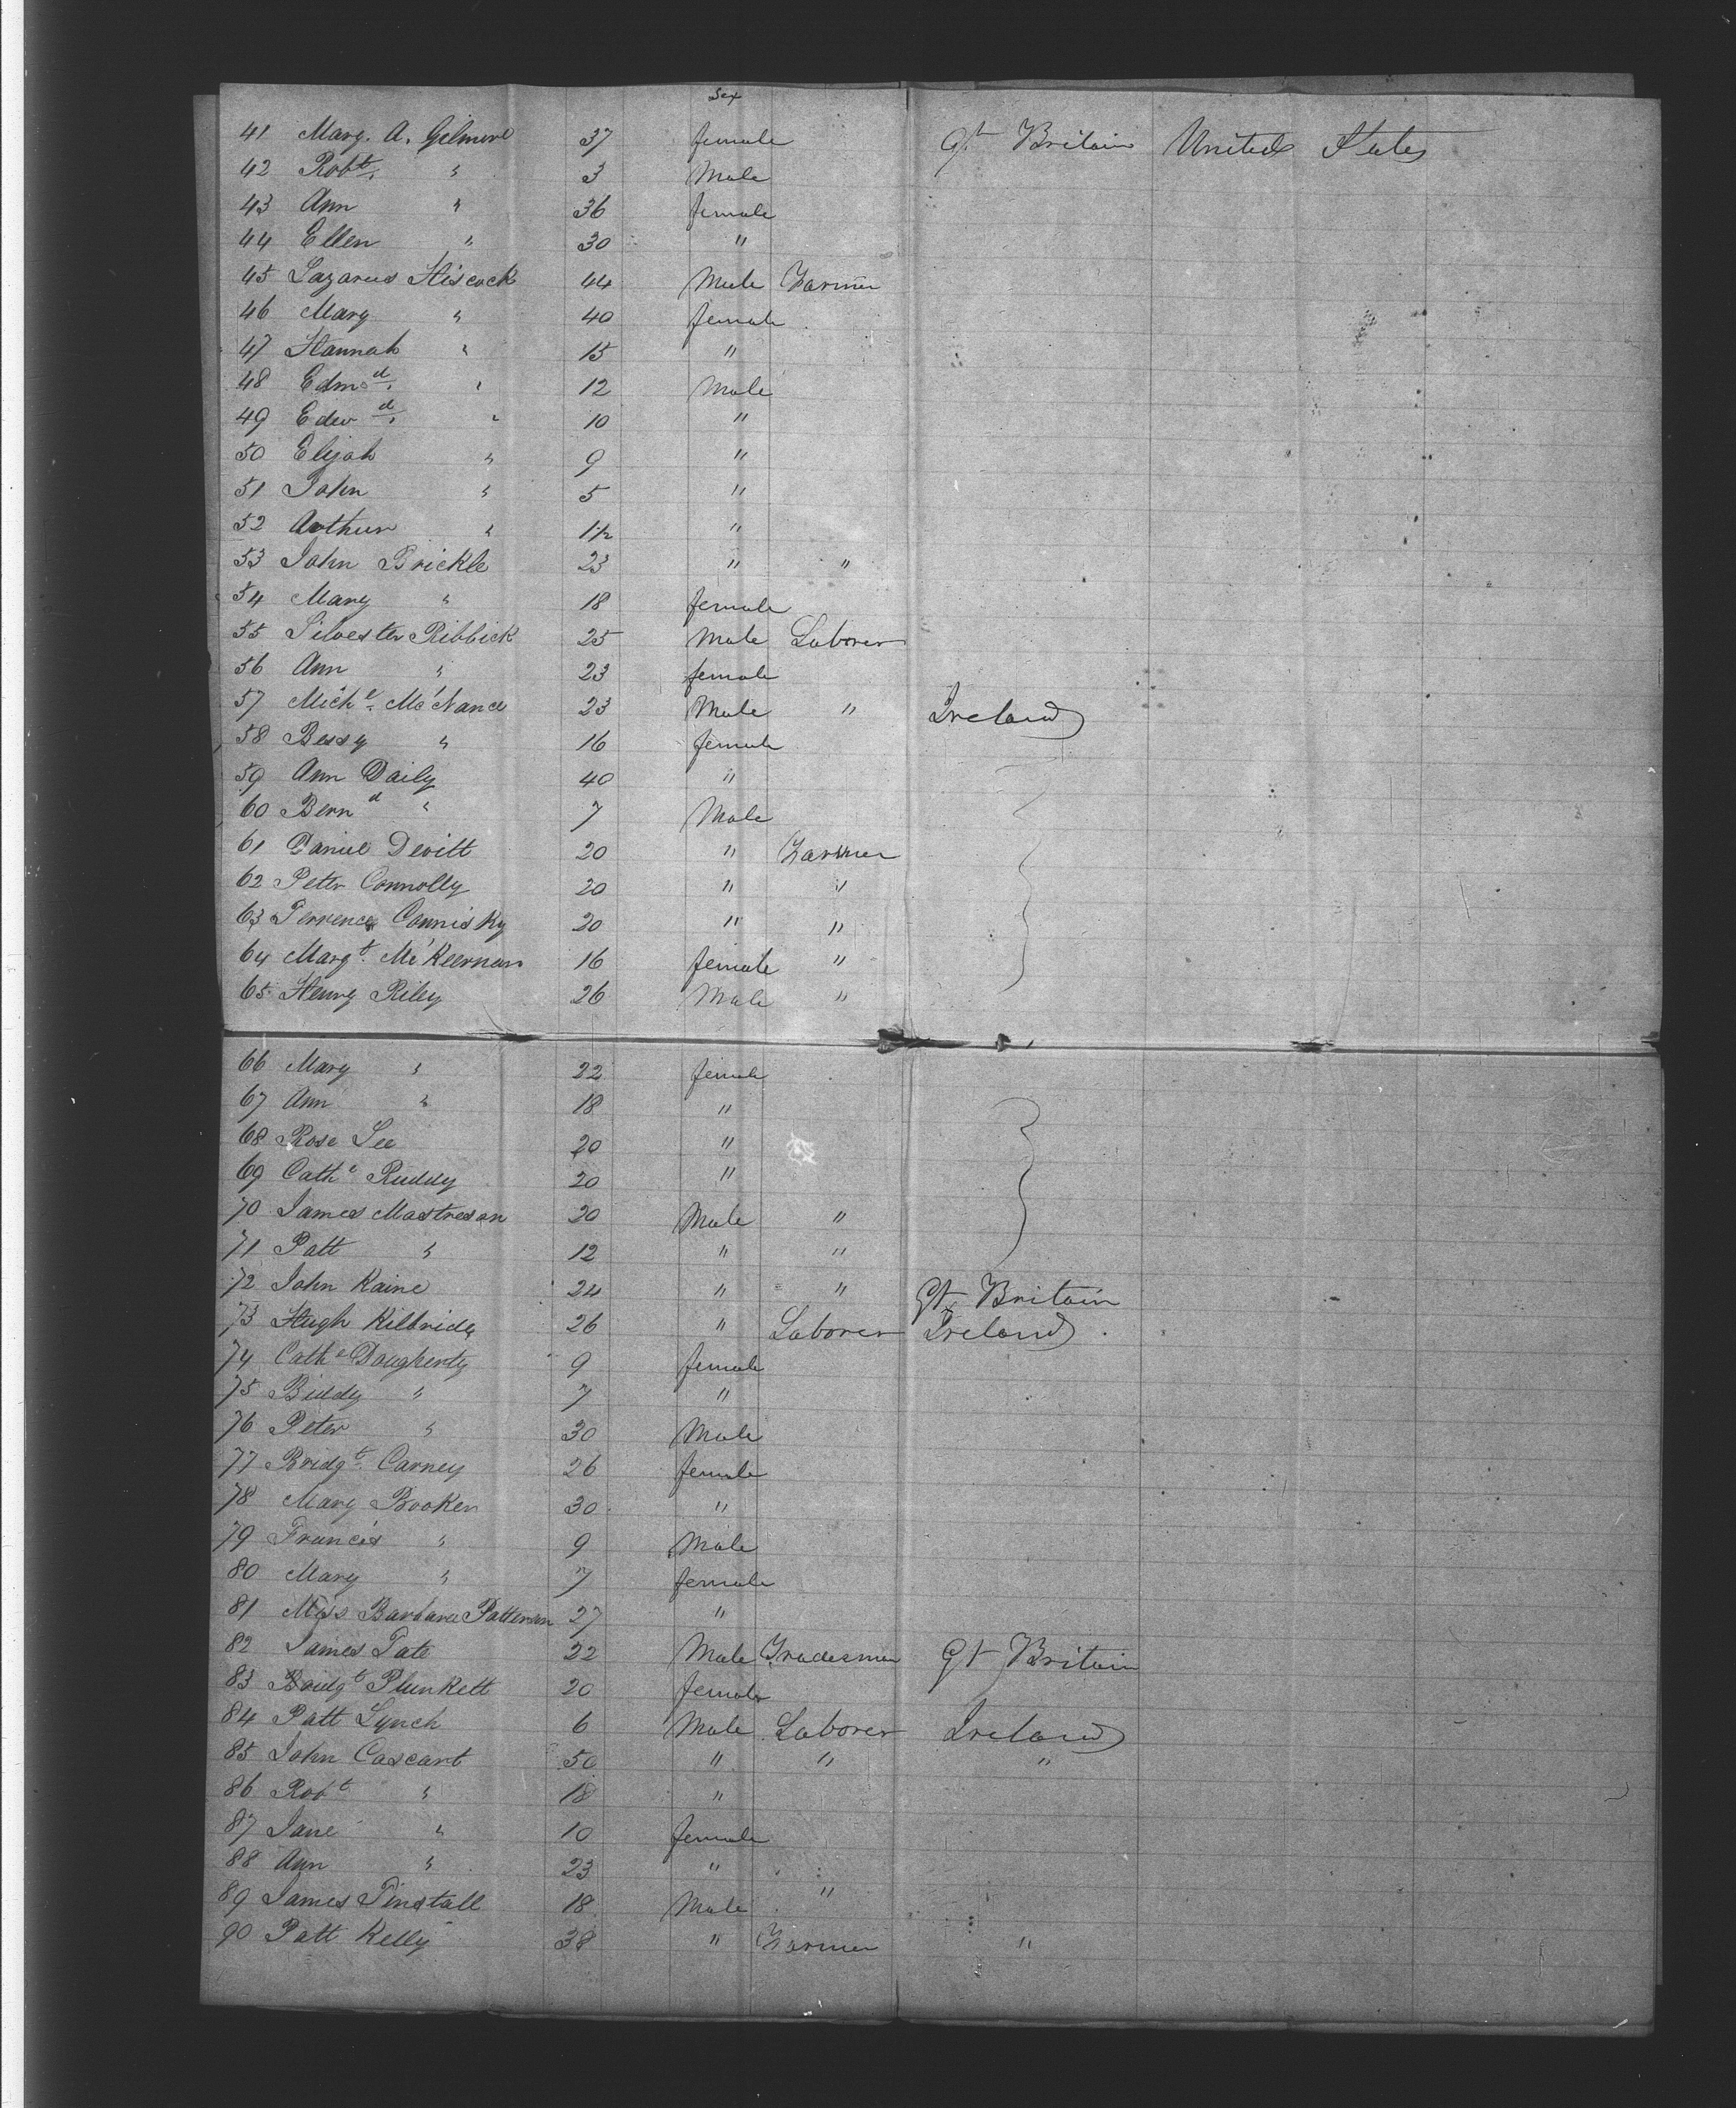 Sex
41 Mary. A. Gilmore 37 female Gt Britain United States
42 Robt. " 3 Male
43 Ann " 36 female
44 Ellen " 30 "
45 Lazarus Hiscock 44 Male Farmer
46 Mary " 40 female
47 Hannah " 15 "
48 Edmd. " 12 Male
49 Edwd. " 10 "
50 Elijah " 9 "
51 John " 5 "
52 Arthur " 1½ "
53 John Brickle 23 " "
54 Mary " 18 female
55 Silvester Ribbick 25 Male Laborer
56 Ann " 23 female
57 Michl. McNana 23 Male " Ireland
58 Bessy " 16 female
59 Ann Daily 40 "
60 Bernd " 7 Male
61 Daniel Devitt 20 " Farmer
62 Peter Connolly 20 " "
63 Terrence Connisky 20 " "
64 Margt. McKeernan 16 female "
65 Henry Riley 26 Male "
66 Mary " 22 female
67 Ann " 18 "
68 Rose Lee 20 "
69 Cathe Ruddy 20 "
70 James Mastreson 20 Male "
71 Patt " 12 " "
72 John Kaine 24 " " Gt Britain
73 Hugh Kilbride 26 " Laborer Ireland
74 Cathe Dougherty 9 female
75 Biddy " 7 "
76 Peter " 30 Male
77 Bridgt. Carney 26 female
78 Mary Booker 30 "
79 Francis " 9 Male
80 Mary " 7 female
81 Miss Barbara Patterson 27 "
82 James Tate 22 Male Tradesman Gt Britain
83 Bridgt Plunkett 20 female
84 Patt Lynch 6 Male Laborer Ireland
85 John Cascart 50 " " "
86 Robt " 18 "
87 Jane " 10 female
88 Ann " 23 "
89 James Tinstall 18 Male "
90 Patt Kelly 38 " Farmer "